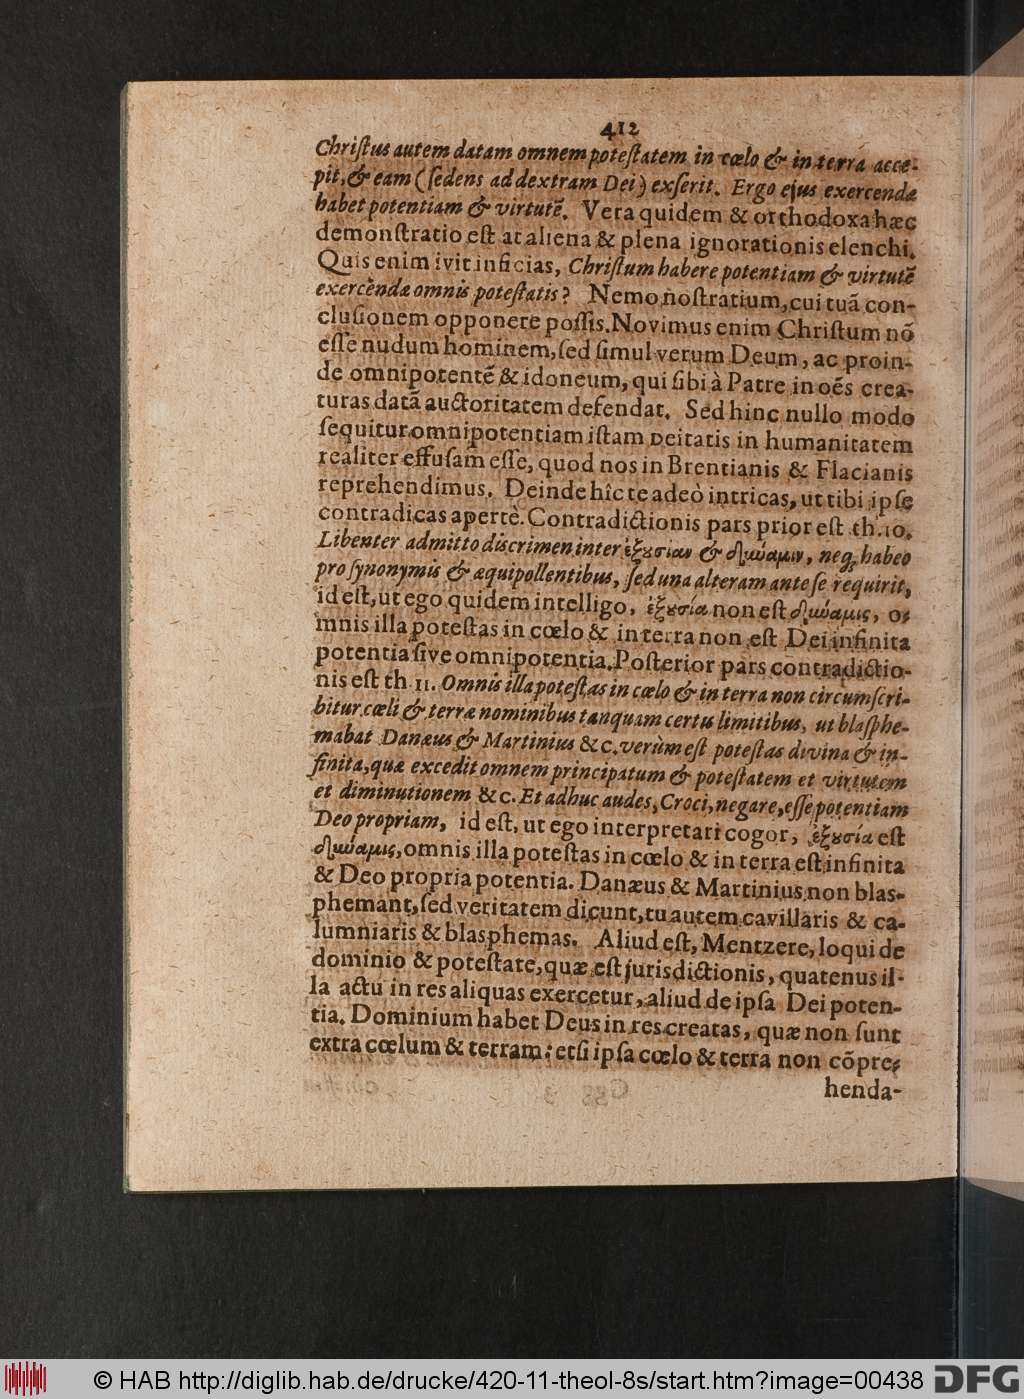 412
Chriſtus autem datam omnem poteſtatem in cœlo & in terra acce-
pit, & eam (ſedens ad dextram Dei) exſerit. Ergo ejus exercendæ
habet potentiam & virtutẽ. Vera quidem & orthodoxa hæc
demonſtratio eſt at aliena & plena ignorationis elenchi.
Quis enim ivit inficias, Chriſtum habere potentiam & virtutẽ
exercendæ omnis poteſtatis? Nemo noſtratium, cui tuã con-
cluſionem opponere poſſis. Novimus enim Chriſtum nõ
eſſe nudum hominem, ſed ſimul verum Deum, ac proin-
de omnipotentẽ & idoneum, qui ſibi à Patre in oẽs crea-
turas datã auctoritatem defendat. Sed hinc nullo modo
ſequitur omnipotentiam iſtam Deitatis in humanitatem
realiter effuſam eſſe, quod nos in Brentianis & Flacianis
reprehendimus. Deinde hîc te adeò intricas, ut tibi ipſe
contradicas apertè. Contradictionis pars prior eſt th. 10.
Libenter admitto discrimen inter ἐξουσίαν & δύναμιν, neq; habeo
pro ſynonymis & æquipollentibus, ſed una alteram ante ſe requirit,
id eſt, ut ego quidem intelligo, ἐξουσία non eſt δύναμις, o-
mnis illa poteſtas in cœlo & in terra non eſt Dei infinita
potentia ſive omnipotentia. Poſterior pars contradictio-
nis eſt th 11. Omnis illa poteſtas in cœlo & in terra non circumſcri-
bitur cœli & terræ nominibus tanquam certis limitibus, ut blaſphe-
mabat Danæus & Martinius &c. verùm eſt poteſtas divina & in-
finita, quæ excedit omnem principatum & poteſtatem et virtutem
et diminutionem &c. Et adhuc audes, Croci, negare, eſſe potentiam
Deo propriam, id eſt, ut ego interpretari cogor, ἐξουσία eſt
δύναμις, omnis illa poteſtas in cœlo & in terra eſt infinita
& Deo propria potentia. Danæus & Martinius non blas-
phemant, ſed veritatem dicunt, tu autem cavillaris & ca-
lumniaris & blasphemas. Aliud eſt, Mentzere, loqui de
dominio & poteſtate, quæ eſt jurisdictionis, quatenus il-
la actu in res aliquas exercetur, aliud de ipſa Dei poten-
tia. Dominium habet Deus in res creatas, quæ non ſunt
extra cœlum & terram: etſi ipſa cœlo & terra non cõpre-
henda-
© HAB http://diglib.hab.de/drucke/420-11-theol-8s/start.htm?image=00438
DFG